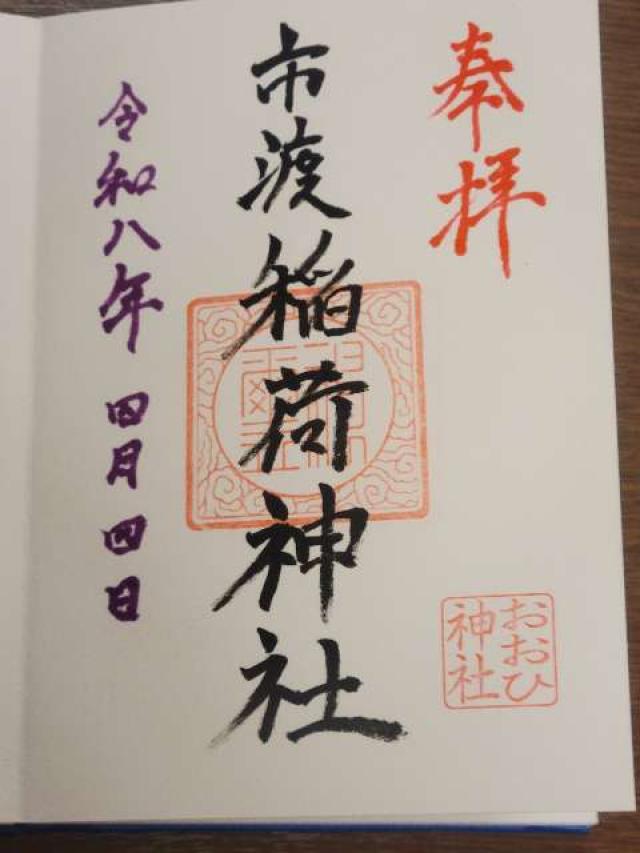 奉拝
おおひ
神社
市渡稲荷神社
令和八年 四月四日